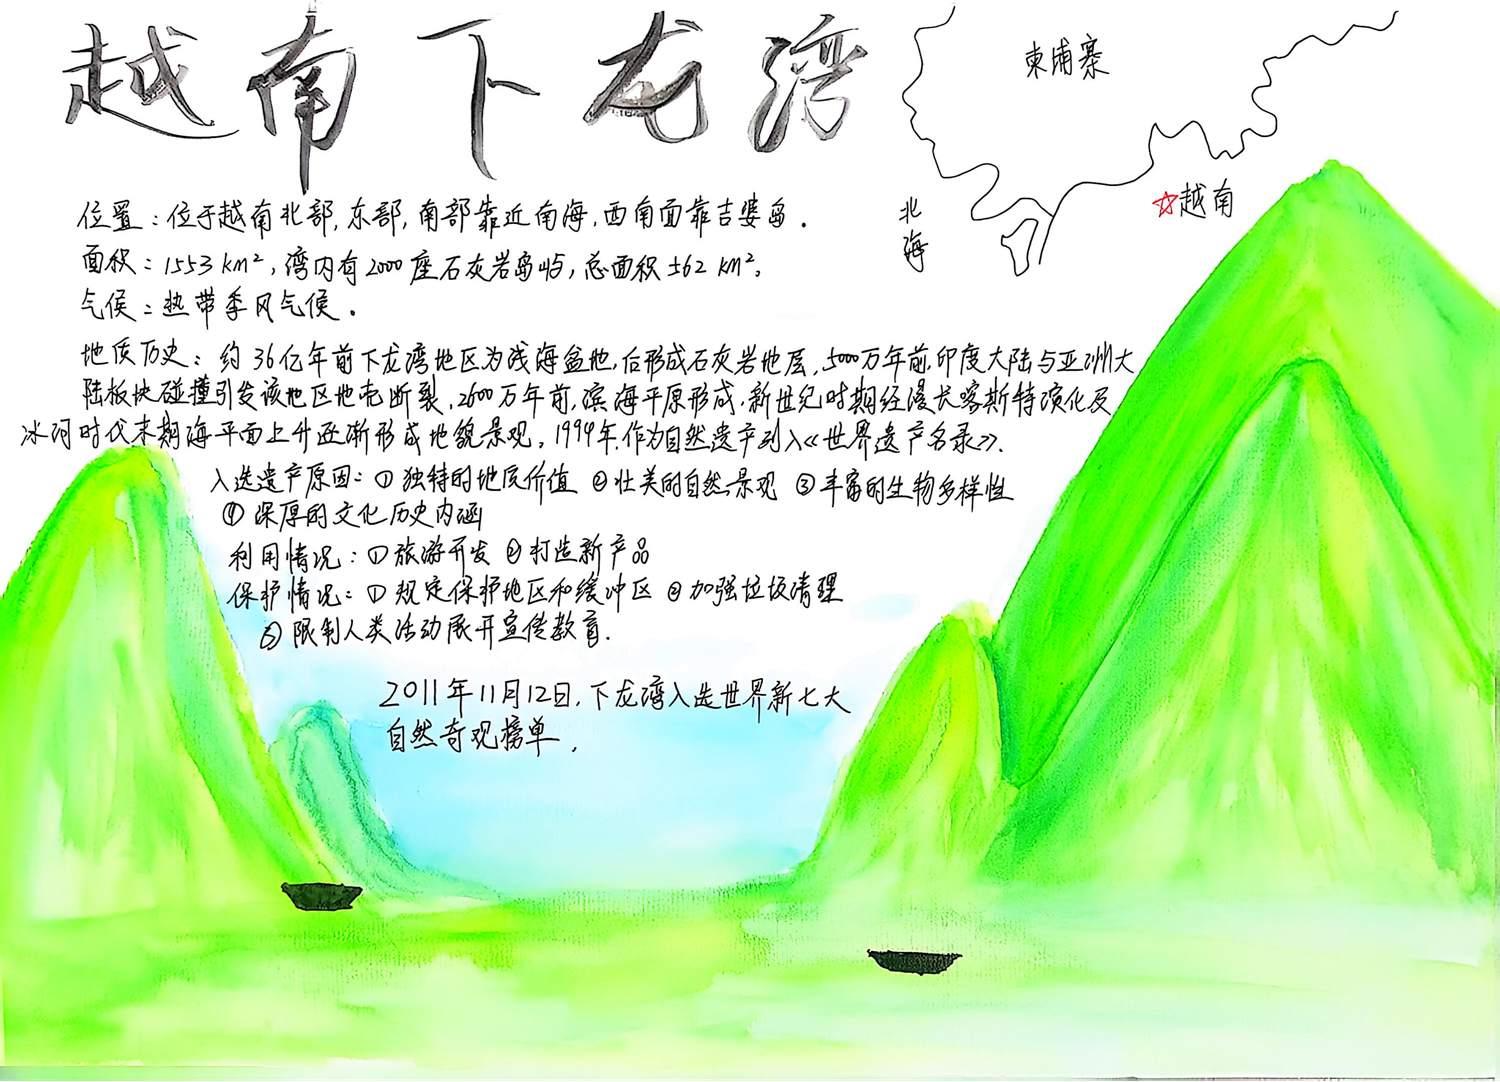 越南下龙湾
柬埔寨
☆越南
北海
位置：位于越南北部，东部，南部靠近南海，西南面靠吉婆岛。
面积：1553 km²，湾内有2000座石灰岩岛屿，总面积±62 km²。
气候：热带季风气候。
地质历史：约36亿年前下龙湾地区为浅海盆地，后形成石灰岩地层，5000万年前，印度大陆与亚洲大
陆板块碰撞引发该地区地壳断裂，2600万年前，滨海平原形成，新世纪时期经漫长喀斯特演化及
冰河时代末期海平面上升逐渐形成地貌景观，1994年，作为自然遗产列入《世界遗产名录》.
入选遗产原因：①独特的地质价值 ②壮美的自然景观 ③丰富的生物多样性
④深厚的文化历史内涵
利用情况：①旅游开发 ②打造新产品
保护情况：①规定保护地区和缓冲区 ②加强垃圾清理
③限制人类活动展开宣传教育.
2011年11月12日，下龙湾入选世界新七大
自然奇观榜单，